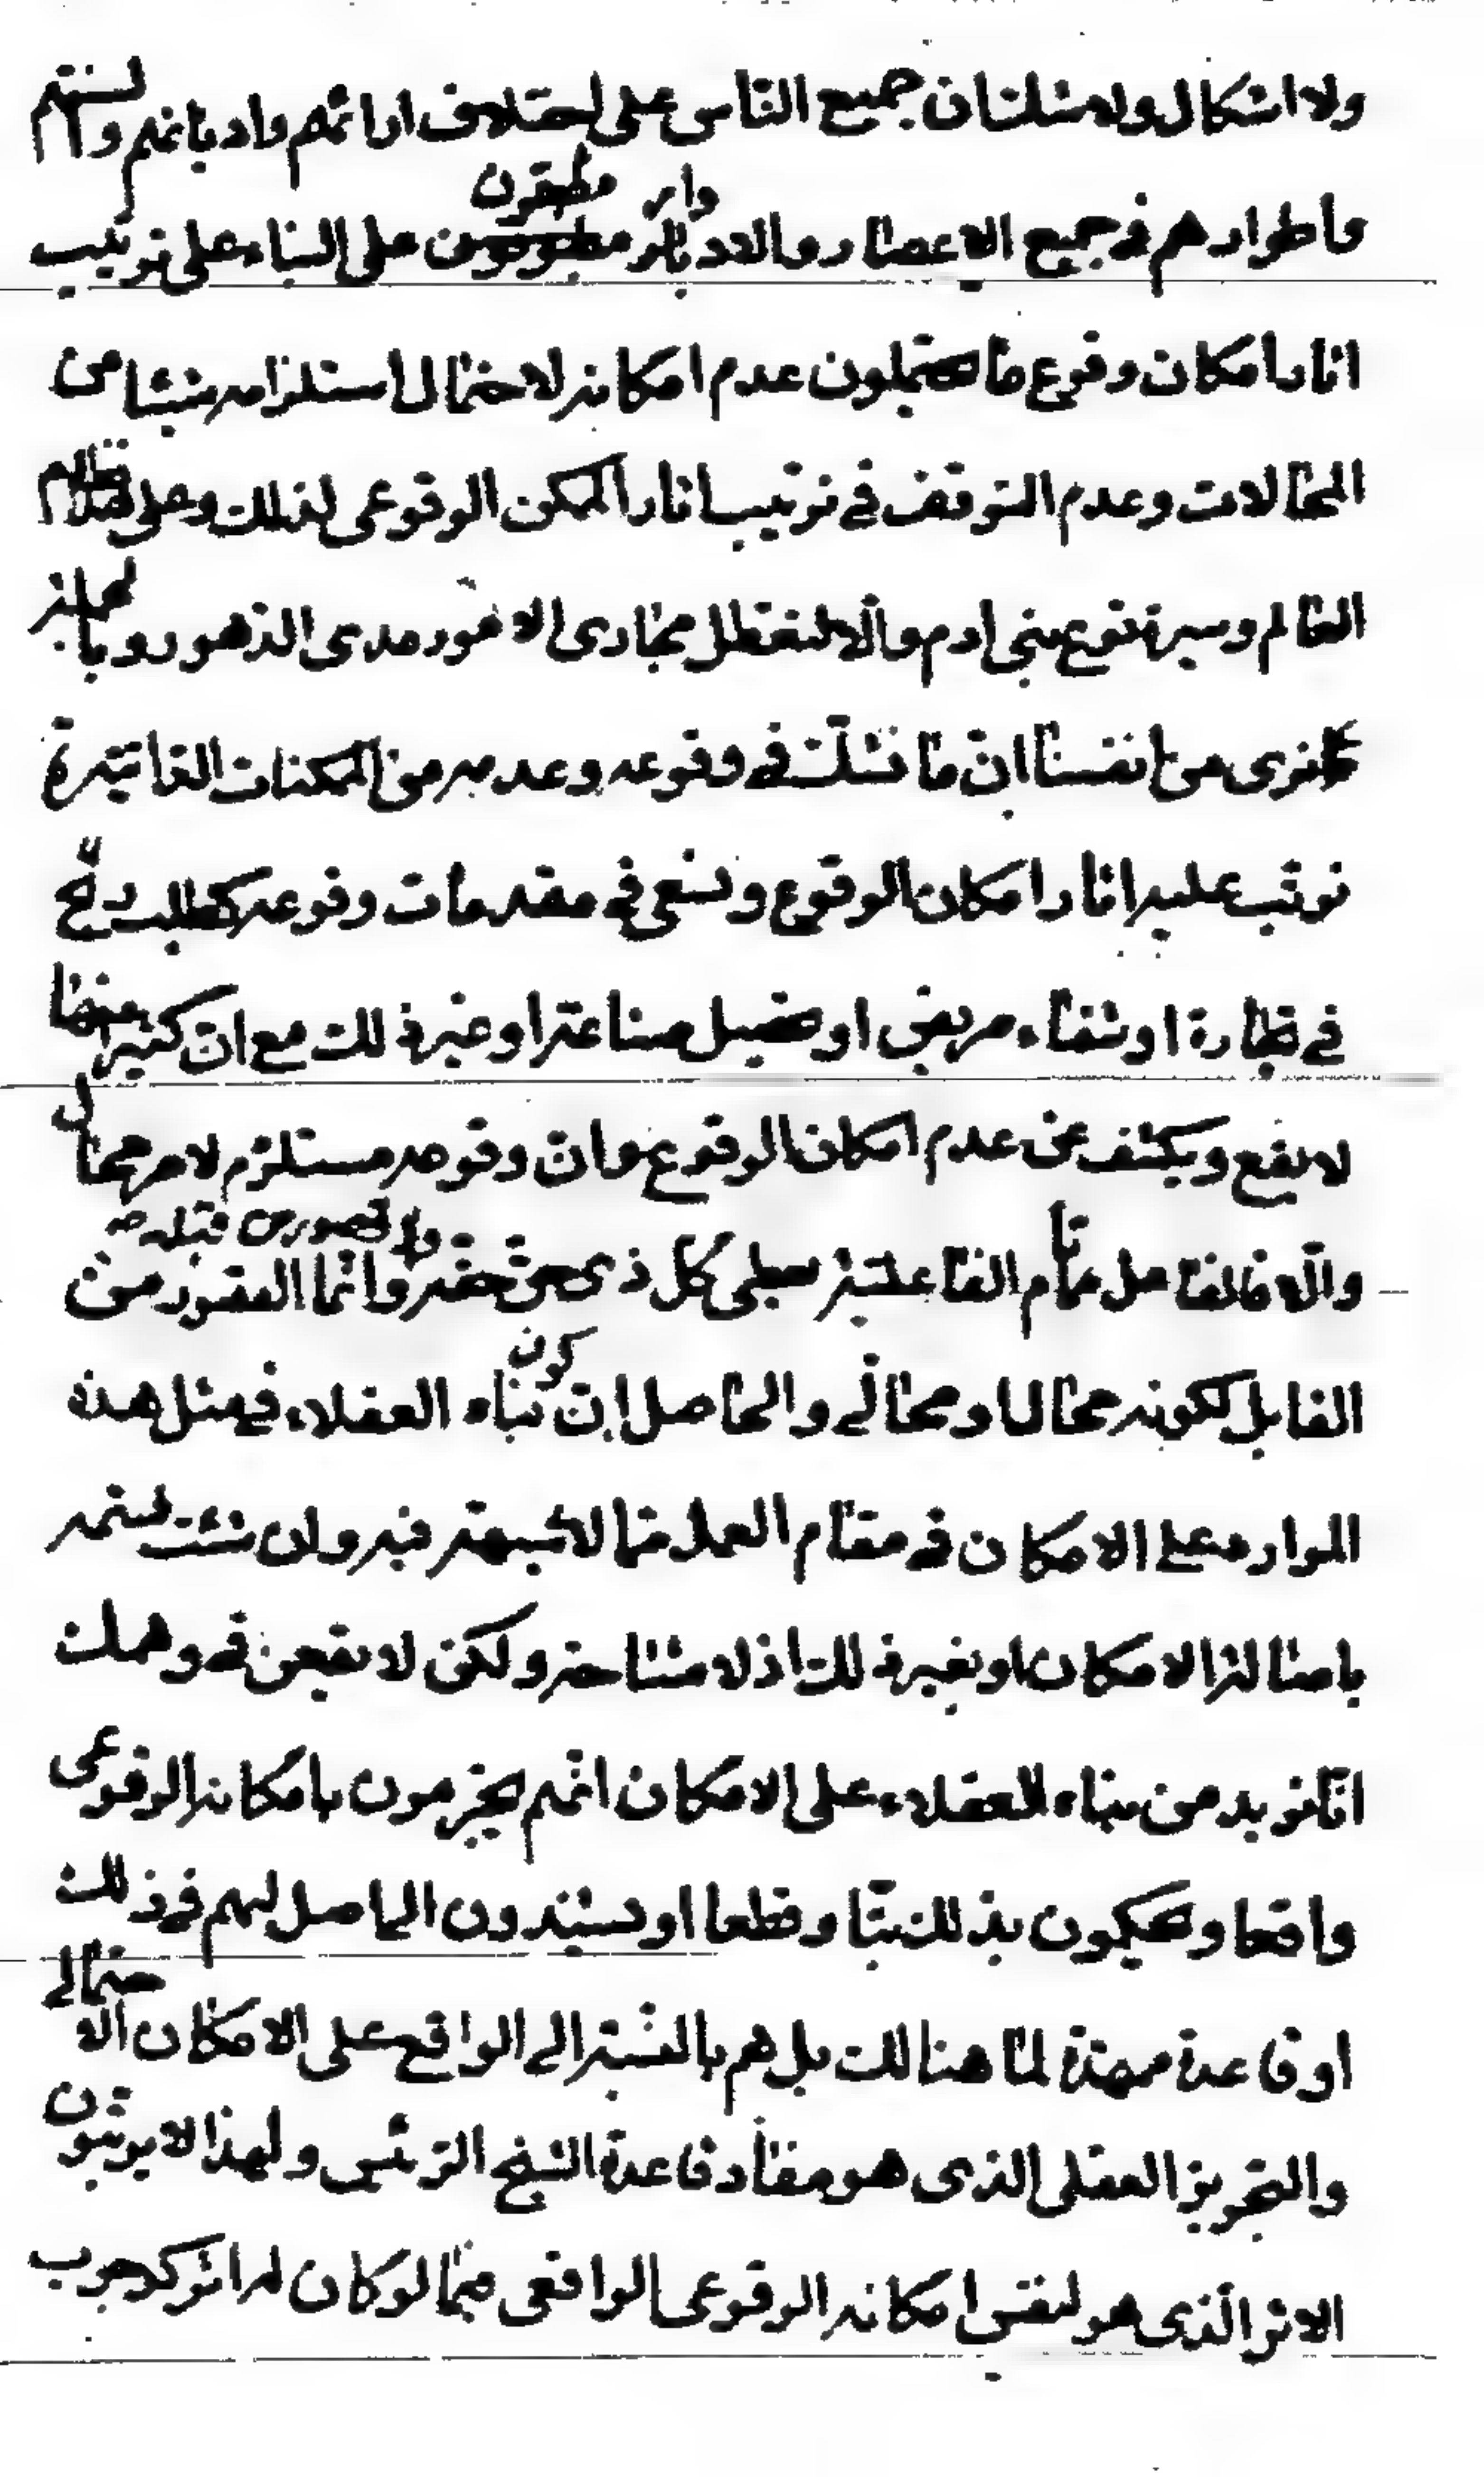 ولا اشكال ولا شك ان جميع الناس على اختلاف ارائهم واديانهم والسنتهم
واطوارهم فى جميع الاعصار والادوار مطبقون على البناء على ترتيب
اثار امكان وقوع ما يحتملون عدم امكانه لاحتمال استلزامه شيئا من
المحالات وعدم التوقف فى ترتيب اثار الممكن الوقوعى لذلك وعلى هذا نظام
العالم وسيرة نوع بنى ادم والا لتعطل مجارى الامور مدى الدهور وبالجملة
نرى من انفسنا ان ما نشك فى وقوعه وعدمه من الممكنات الذاتية
نرتب عليه اثار امكان الوقوع ونسعى فى مقدمات وقوعه كطلب ربح
فى تجارة او شفاء مريض او تحصيل صناعة او غير ذلك مع ان كثيرا منها
لا يقع ويكشف عن عدم امكان الوقوع وان وقوعه مستلزم لامر محال
والا فالفاعل تام الفاعلية يعطى كل ذى حق حقه ولا قصور من قبله وانما القصور من
القابل لكونه محالا او محالى والحاصل ان كون بناء العقلاء فى مثل هذه
الموارد على الامكان فى مقام العمل مما لا شبهة فيه وان شئت لسمه
باصالة الامكان او بغير ذلك اذ لا مشاحة ولكن لا يقعن فى وهمك
انا نريد من بناء العقلاء على الامكان انهم يجزمون بامكانه الوقوعى
واقعا ويحكمون بذلك بتا وقطعا او يستندون الى اصل لهم فى ذلك
او قاعدة ممهدة لما هنالك بل هم بالنسبة الى الواقع على الامكان الاحتمالى
والتجويز العقلى الذى هو مفاد قاعدة الشيخ الرئيس ولهذا لا يرتبون
الاثر الذى هو لنفس امكانه الوقوعى الواقعى فيما لو كان له اثر كوجوب